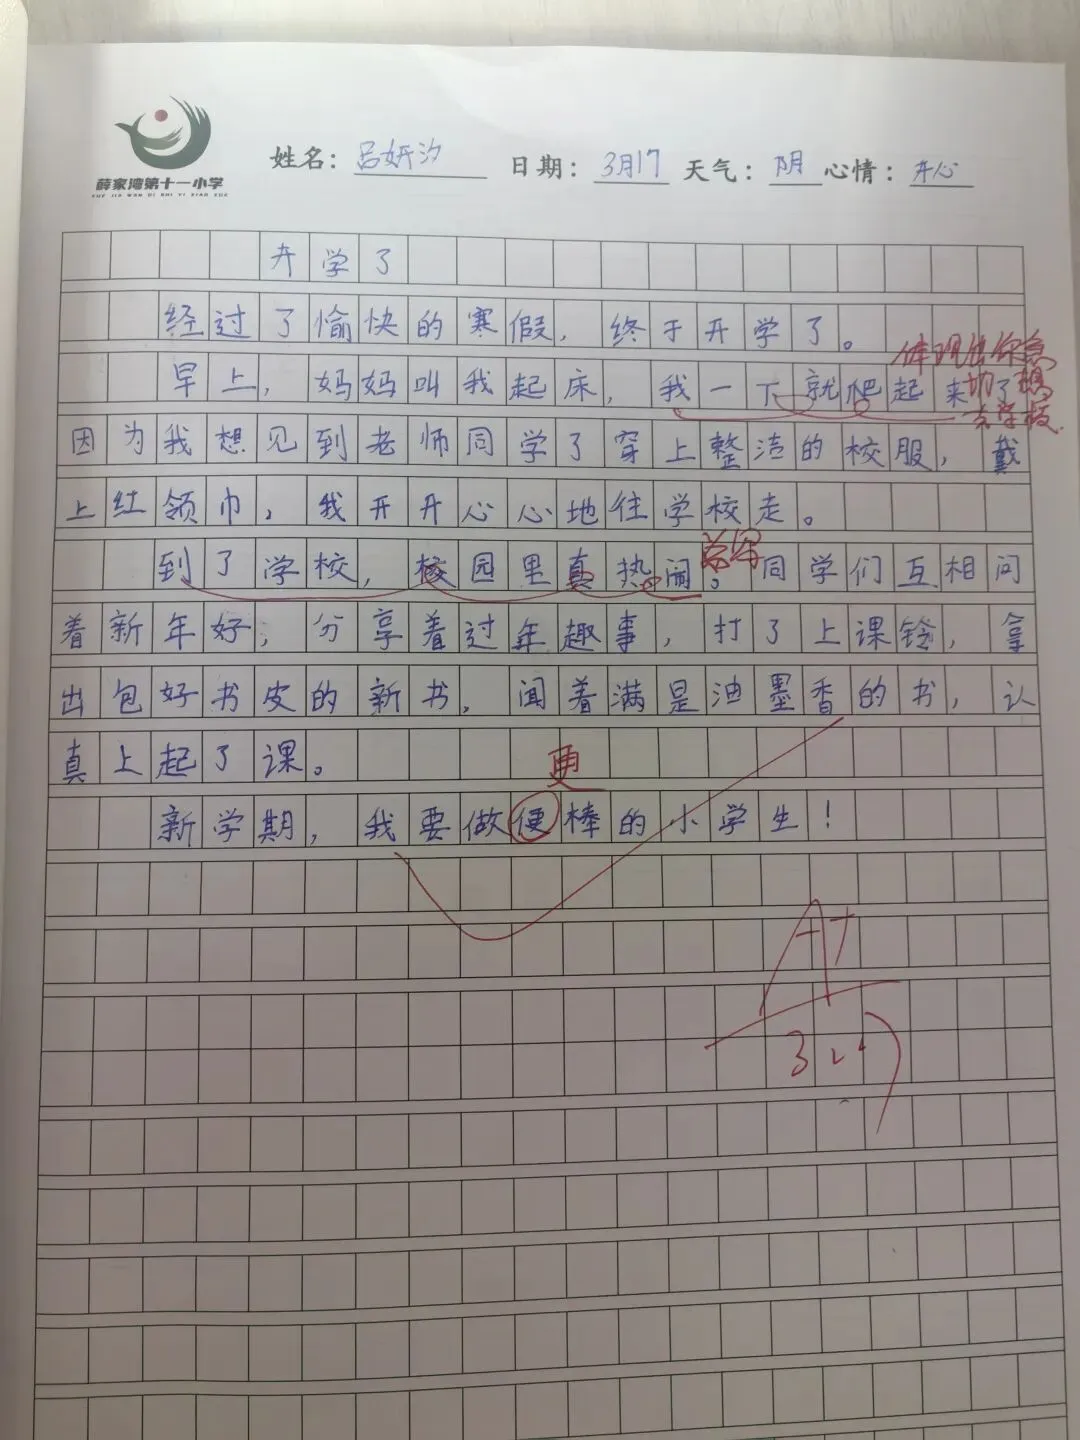 薛家湾第十一小学
XUE JIA WAN DI SHI YI XIAO XUE
姓名：吕妍汐 日期：3月17 天气：阴 心情：开心
开学了
经过了愉快的寒假，终于开学了。
体现出你急
早上，妈妈叫我起床，我一下就爬起来了
切想
去学校
因为我想见到老师同学了穿上整洁的校服，戴
上红领巾，我开开心心地往学校走。
到了学校，校园里真热闹。同学们互相问
着新年好，分享着过年趣事，打了上课铃，拿
出包好书皮的新书，闻着满是油墨香的书，认
真上起了课。
更
新学期，我要做便棒的小学生！
A+